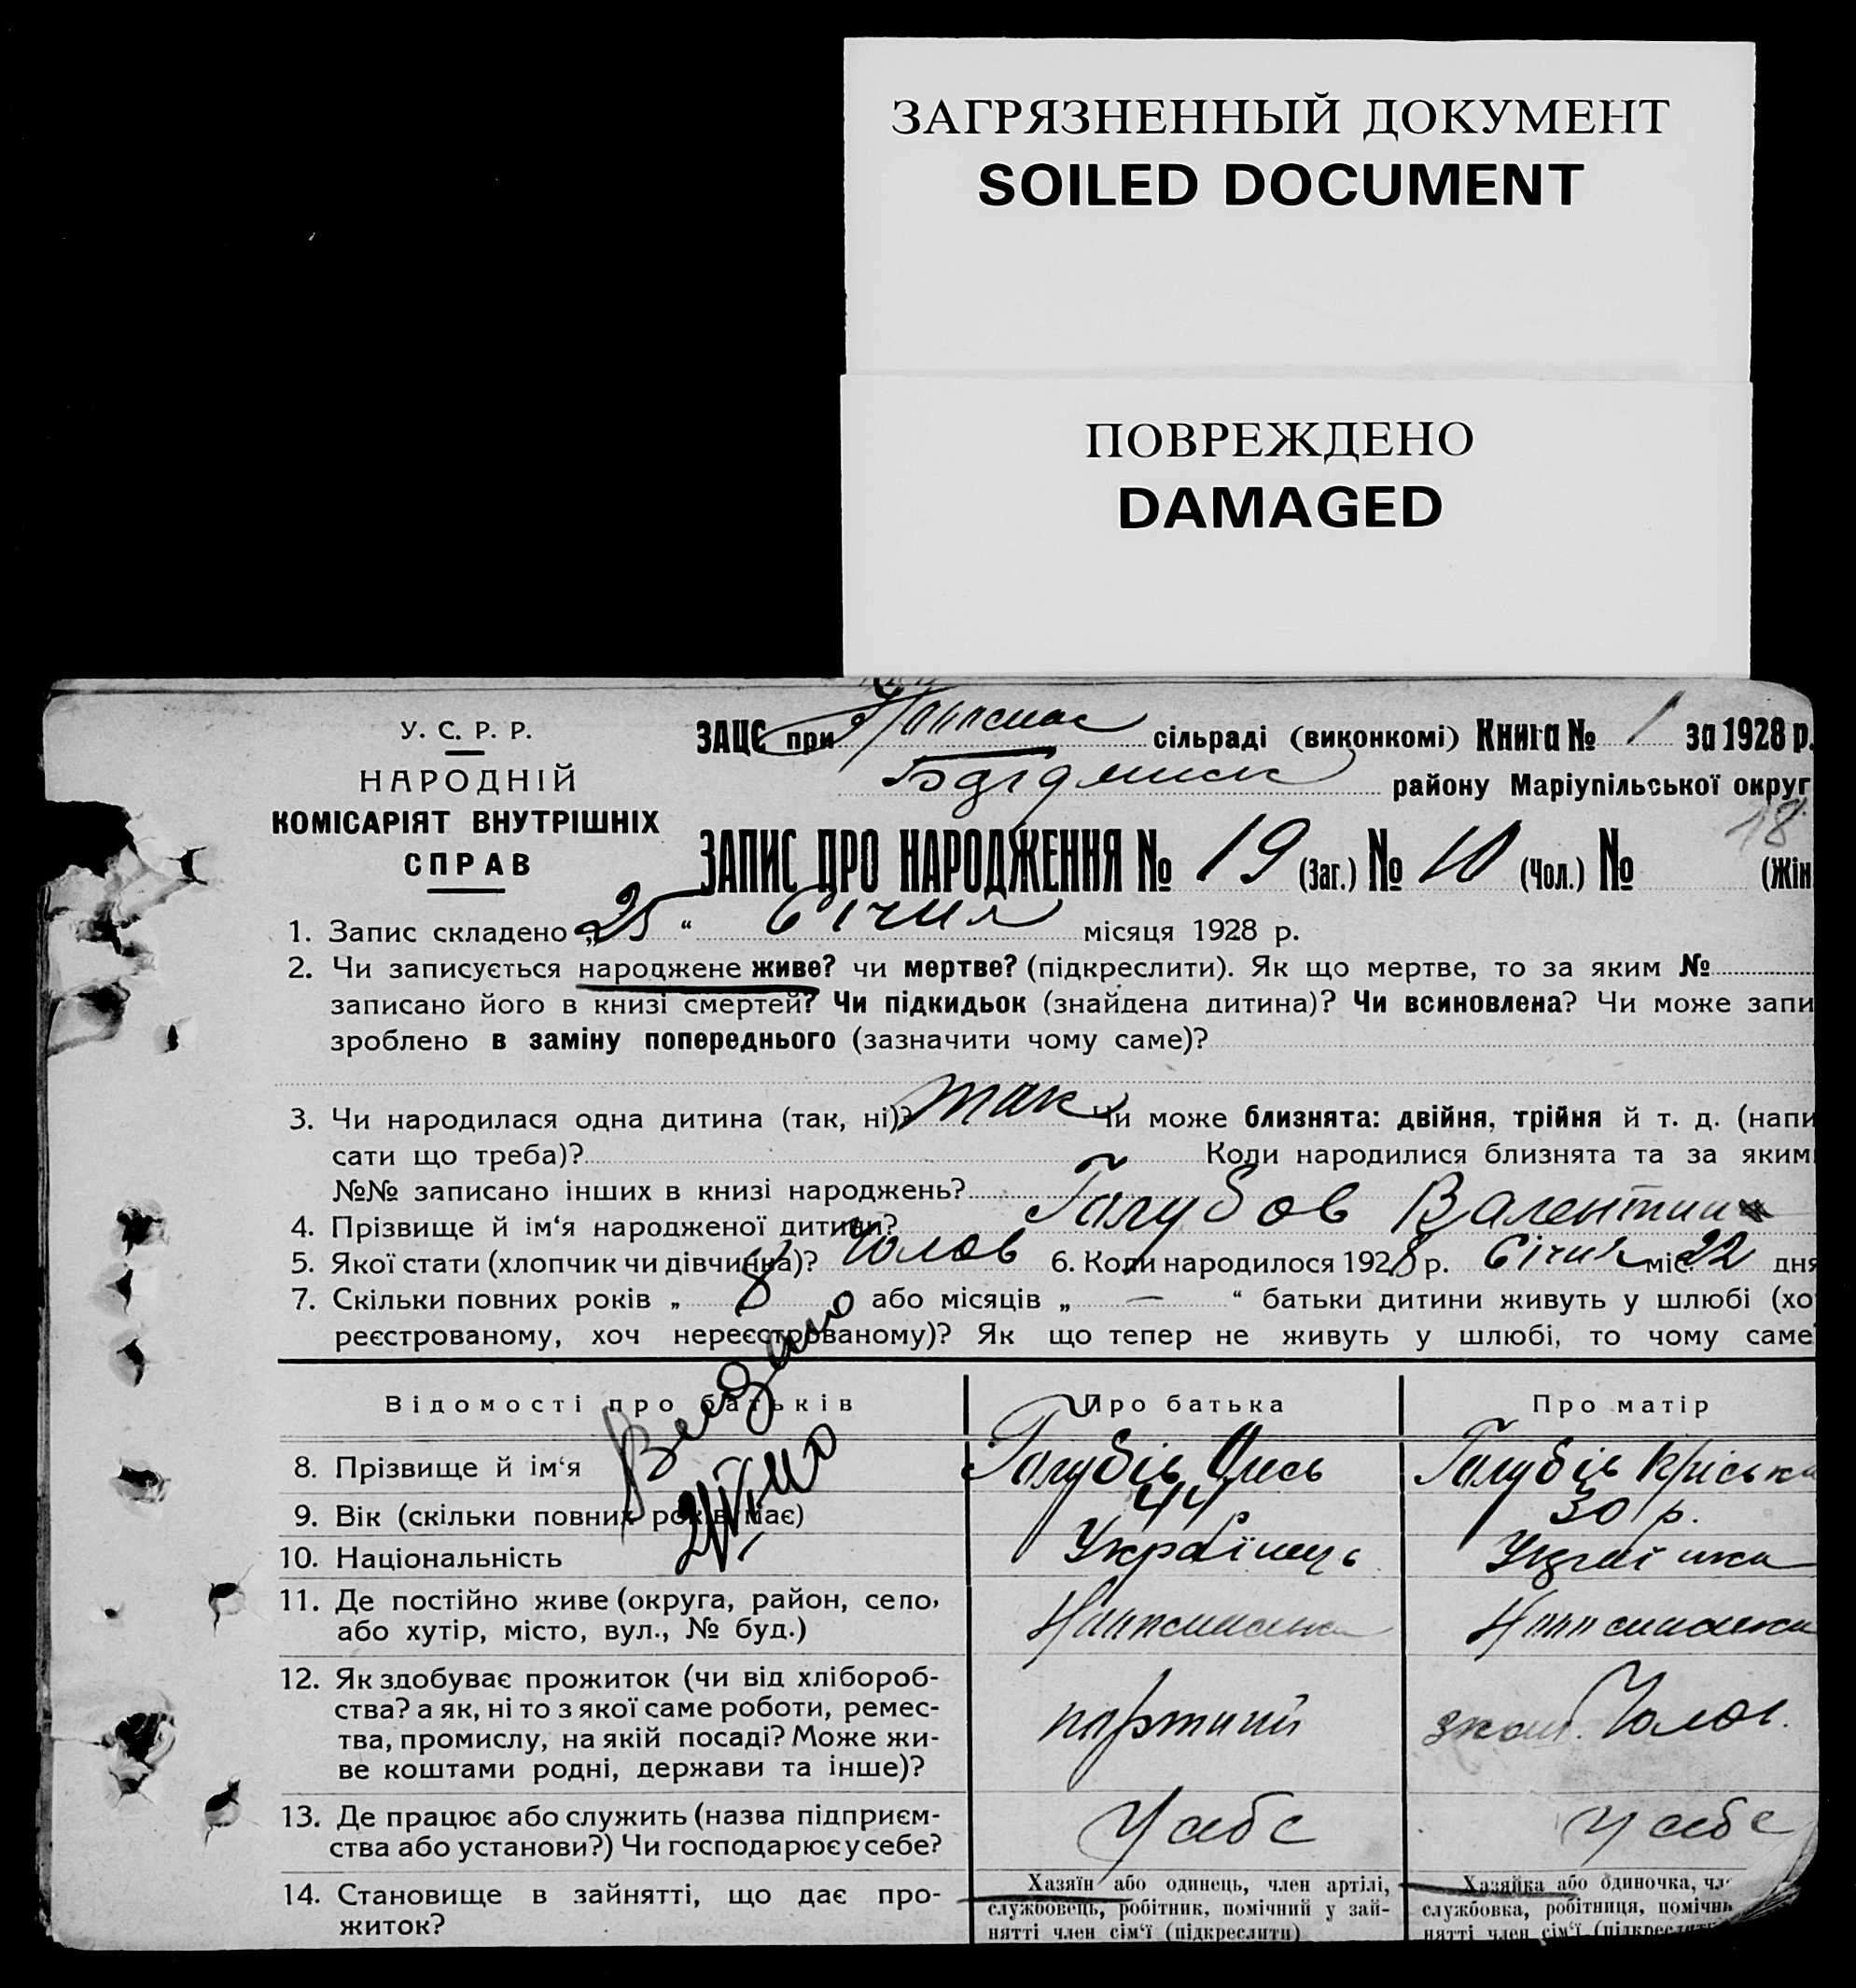 ЗАГРЯЗНЕННЫЙ ДОКУМЕНТ
SOILED DOCUMENT
ПОВРЕЖДЕНО
DAMAGED
У. С. Р. Р.
НАРОДНІЙ
КОМІСАРІЯТ ВНУТРІШНІХ
СПРАВ
ЗАЦС при сільраді (виконкомі) Книга № 1 за 1928 р.
району Маріупільської округ
18
ЗАПИС ПРО НАРОДЖЕННЯ № 19 (Заг.) № 10 (Чол.) № (Жін
1. Запис складено „25“ Січня місяця 1928 р.
2. Чи записується народжене живе? чи мертве? (підкреслити). Як що мертве, то за яким №
записано його в книзі смертей? Чи підкидьок (знайдена дитина)? Чи всиновлена? Чи може запи
зроблено в заміну попереднього (зазначити чому саме)?
3. Чи народилася одна дитина (так, ні)? так Чи може близнята: двійня, трійня й т. д. (напи
сати що треба)? Коли народилися близнята та за яким
№№ записано інших в книзі народжень?
4. Прізвище й ім‘я народженої дитини? Голубов Валентин
5. Якої стати (хлопчик чи дівчинка)? Чолов 6. Коли народилося 1928 р. Січня міс. 22 дня
7. Скільки повних років „ 8 або місяців „ — “ батьки дитини живуть у шлюбі (хо
реєстрованому, хоч нереєстрованому)? Як що тепер не живуть у шлюбі, то чому саме
Відомості про батьків Про батька Про матір
8. Прізвище й ім‘я Голубів Олесь Голубів
9. Вік (скільки повних років має) 44 30 р.
10. Національність Українець Українка
11. Де постійно живе (округа, район, село,
або хутір, місто, вул., № буд.)
12. Як здобуває прожиток (чи від хлібороб-
ства? а як, ні то з якої саме роботи, ремес-
тва, промислу, на якій посаді? Може жи-
ве коштами родні, держави та інше)?
13. Де працює або служить (назва підприєм-
ства або установи?) Чи господарює у себе?
14. Становище в зайнятті, що дає про-
житок?
Хазяїн або одинець, член артілі,
службовець, робітник, помічний у зай-
нятті член сім‘ї (підкреслити)
Хазяйка або одиночка, чл
службовка, робітниця, помічн
нятті член сім‘ї